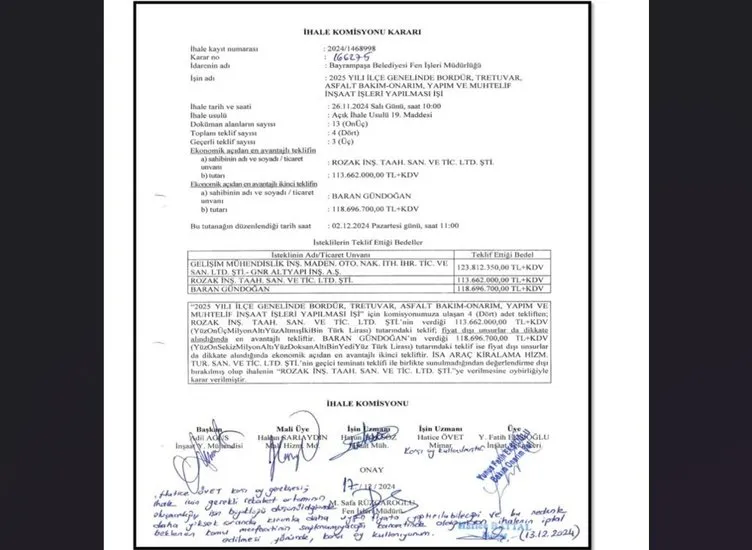 İHALE KOMİSYONU KARARI
İhale kayıt numarası : 2024/1468998
Karar no : 166275
İdarenin adı : Bayrampaşa Belediyesi Fen İşleri Müdürlüğü
İşin adı : 2025 YILI İLÇE GENELİNDE BORDÜR, TRETUVAR,
ASFALT BAKIM-ONARIM, YAPIM VE MUHTELİF
İNŞAAT İŞLERİ YAPILMASI İŞİ
İhale tarih ve saati : 26.11.2024 Salı Günü, saat 10:00
İhale usulü : Açık İhale Usulü 19. Maddesi
Doküman alanların sayısı : 13 (OnÜç)
Toplam teklif sayısı : 4 (Dört)
Geçerli teklif sayısı : 3 (Üç)
Ekonomik açıdan en avantajlı teklifin
a) sahibinin adı ve soyadı / ticaret
unvanı : ROZAK İNŞ. TAAH. SAN. VE TİC. LTD. ŞTİ.
b) tutarı : 113.662.000,00 TL+KDV
Ekonomik açıdan en avantajlı ikinci teklifin
a) sahibinin adı ve soyadı / ticaret
unvanı : BARAN GÜNDOĞAN
b) tutarı : 118.696.700,00 TL+KDV
Bu tutanağın düzenlendiği tarih saat : 02.12.2024 Pazartesi günü, saat 11:00
İsteklilerin Teklif Ettiği Bedeller
İsteklinin Adı/Ticaret Unvanı Teklif Ettiği Bedel
GELİŞİM MÜHENDİSLİK İNŞ. MADEN. OTO. NAK. İTH. İHR. TİC. VE
SAN. LTD. ŞTİ.- GNR ALTYAPI İNŞ. A.Ş. 123.812.350,00 TL+KDV
ROZAK İNŞ. TAAH. SAN. VE TİC. LTD. ŞTİ. 113.662.000,00 TL+KDV
BARAN GÜNDOĞAN 118.696.700,00 TL+KDV
"2025 YILI İLÇE GENELİNDE BORDÜR, TRETUVAR, ASFALT BAKIM-ONARIM, YAPIM VE
MUHTELİF İNŞAAT İŞLERİ YAPILMASI İŞİ" için komisyonumuza ulaşan 4 (Dört) adet tekliften;
ROZAK İNŞ. TAAH. SAN. VE TİC. LTD. ŞTİ.'nin verdiği 113.662.000,00 TL+KDV
(YüzOnÜçMilyonAltıYüzAltmışİkiBin Türk Lirası) tutarındaki teklif; fiyat dışı unsurlar da dikkate
alındığında en avantajlı tekliftir. BARAN GÜNDOĞAN'ın verdiği 118.696.700,00 TL+KDV
(YüzOnSekizMilyonAltıYüzDoksanAltıBinYediYüz Türk Lirası) tutarındaki teklif ise fiyat dışı unsurlar
da dikkate alındığında ekonomik açıdan en avantajlı ikinci tekliftir. İSA ARAÇ KİRALAMA HİZM.
TUR. SAN. VE TİC. LTD. ŞTİ.'nin geçici teminatı teklif ile birlikte sunulmadığından değerlendirme dışı
bırakılmış olup ihalenin "ROZAK İNŞ. TAAH. SAN. VE TİC. LTD. ŞTİ."ye verilmesine oybirliğiyle
karar verilmiştir.
İHALE KOMİSYONU
Başkan Mali Üye İşin Uzmanı İşin Uzmanı Üye
Adil Hakan SARIAYDIN Harun Hatice ÖVET Y. Fatih
İnşaat Y. Mühendisi Mali Hizm. Md. Müh. Mimar
Karşı oy kullanılmıştır
ONAY
17/12/2024
M. Safa RÜZGAROĞLU
Fen İşleri Müdürü
Hatice ÖVET karşı oy gerekçesi:
ihale için gerekli rekabet ortamının
işin büyüklüğü düşünüldüğünde
daha yüksek oranda kırımla daha uygun fiyata yaptırılabileceği ve bu nedenle
beklenen kamu menfaatinin sağlanamayacağı ihalenin iptal
edilmesi yönünde, karşı oy kullanıyorum. (13.12.2024)